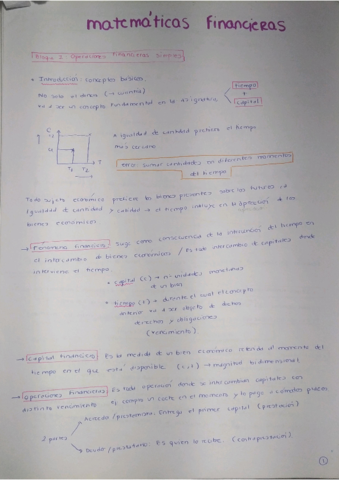 matemáticas financieras
Bloque I: Operaciones financieras simples
• Introducción: conceptos básicos.
No solo el dinero (→ cuantía)
va a ser un concepto fundamental en la asignatura
tiempo
+
capital
C
T
A igualdad de cantidad prefiere el tiempo
más cercano
error: sumar cantidades en diferentes momentos
del tiempo
Todo sujeto económico prefiere los bienes presentes sobre los futuros a
igualdad de cantidad y calidad → el tiempo influye en la apreciación de los
bienes económicos.
→ Fenómeno financiero: Surge como consecuencia de la interacción del tiempo en
el intercambio de bienes económicos / Es todo intercambio de capitales donde
interviene el tiempo.
• capital (C) → nº unidades monetarias
de un bien
• tiempo (t) → durante el cual el concepto
anterior va a ser objeto de
derechos y obligaciones
(vencimiento)
→ Capital financiero: Es la medida de un bien económico referida al momento del
tiempo en el que está disponible (C, t) → magnitud bidimensional
→ Operaciones financieras: Es toda operación donde se intercambian capitales con
distinto vencimiento. ej. compro un coche en el momento y lo pago a cómodos plazos
2 partes
Acreedor/prestamista: Entrega el primer capital (prestación)
Deudor/prestatario: Es quien lo recibe. (contraprestación)
1